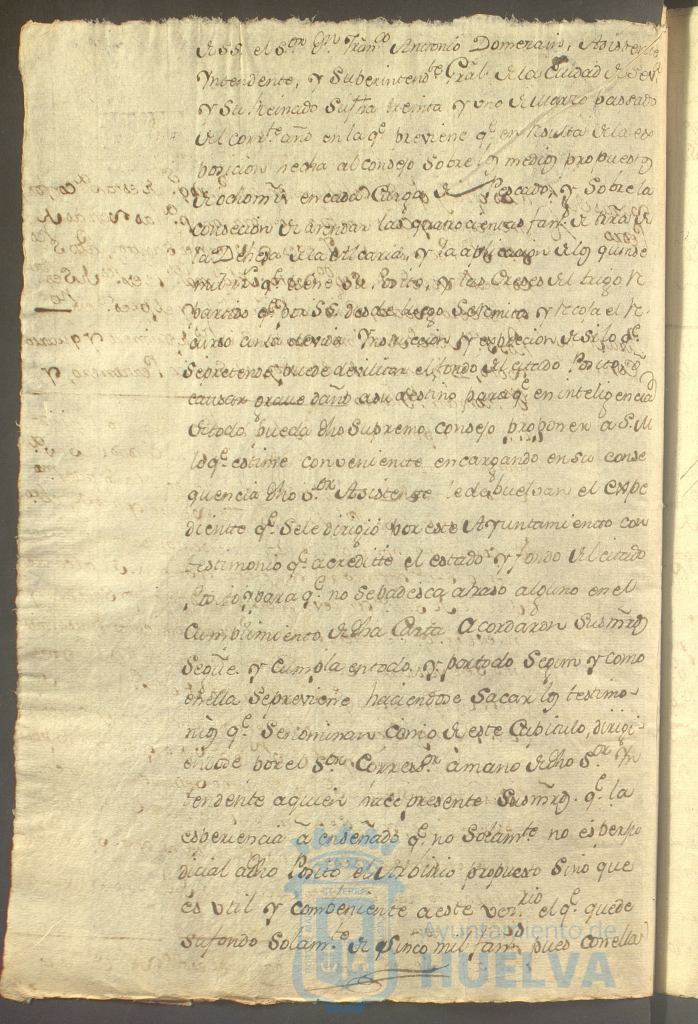 de S.S. el S.or D.n Fran.co Antonio Domezain, Asistente
Yntendente, y Superintend.te Gral. de la Ciudad de Sev.a
y su Reinado su fha treinta y uno de Marzo pasado
del corr.te año en la q.e previene q.e en resulta de la ex
posicion hecha al consejo sobre los medios propuestos
de ocho m.s en cada Carga de Pescado, y sobre la
concecion de arrendar las quatrocientas fan.s de tierra de
la Dehesa de la Alcaria, y la aplicacion de los quinse
mil r.s q.e tiene de Posito, y las Creses del trigo re
partido q.e por S.S. desde luego
airso con la devida Ynstruccion y exprecion de si lo q.e
se pretende puede devilitar el fondo del citado Posito o
causar grave daño a su destino para q.e en inteligencia
de todo pueda dho Supremo consejo proponer a S.M.
lo q.e estime conveniente encargando en su conse
quencia dho S.or Asistente le debuelvan el expe
diente q.e se le dirigió por este Ayuntamiento con
testimonio q.e acredite el estado y fondo del citado
Posito, y para q.e no se padesca atraso alguno en el
Cumplimiento de dha Carta Acordaron Susm̃rds
se gûe. y cumpla en todo, y por todo segun y como
en ella se previene haciendose sacar los testimo-
nios q.e se nominan como de este Capitulo, dirigi-
endose por el S.or Corres.or a mano de dho S.or Yn
tendente a quien hace presente Susm̃rds. q.e la
esperiencia â enseñado q.e no solam.te no es perju
dicial a dho Posito el Arbitrio propuesto sino que
es util y combeniente a este ver.rio el q.e quede
su fondo solam.te de sinco mil fan.s pues con ella
Ayuntamiento de
HUELVA